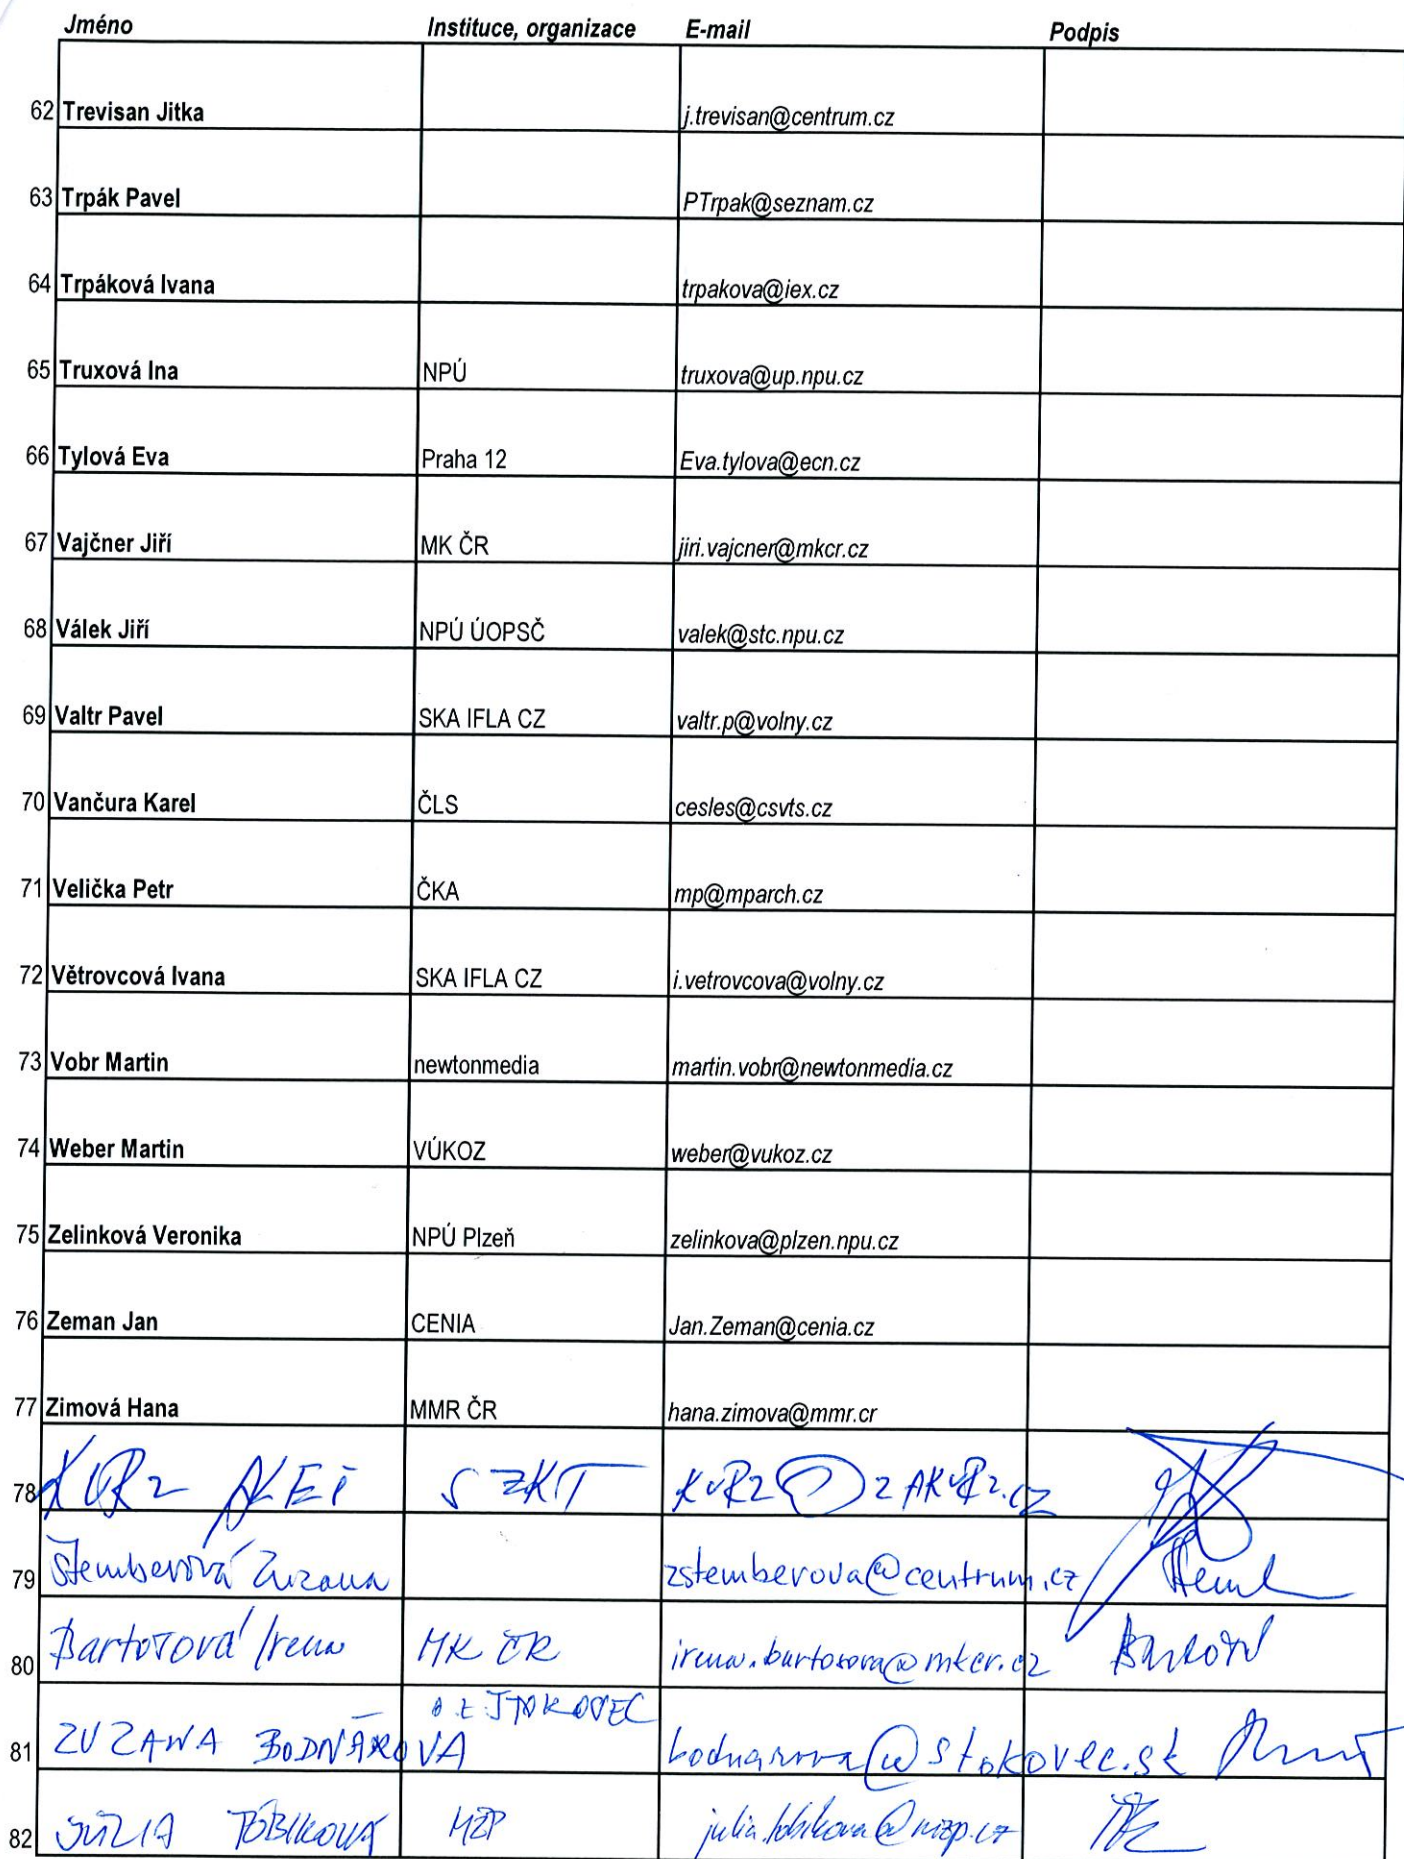 Jméno Instituce, organizace E-mail Podpis
62 Trevisan Jitka j.trevisan@centrum.cz
63 Trpák Pavel PTrpak@seznam.cz
64 Trpáková Ivana trpakova@iex.cz
65 Truxová Ina NPÚ truxova@up.npu.cz
66 Tylová Eva Praha 12 Eva.tylova@ecn.cz
67 Vajčner Jiří MK ČR jiri.vajcner@mkcr.cz
68 Válek Jiří NPÚ ÚOPSČ valek@stc.npu.cz
69 Valtr Pavel SKA IFLA CZ valtr.p@volny.cz
70 Vančura Karel ČLS cesles@csvts.cz
71 Velička Petr ČKA mp@mparch.cz
72 Větrovcová Ivana SKA IFLA CZ i.vetrovcova@volny.cz
73 Vobr Martin newtonmedia martin.vobr@newtonmedia.cz
74 Weber Martin VÚKOZ weber@vukoz.cz
75 Zelinková Veronika NPÚ Plzeň zelinkova@plzen.npu.cz
76 Zeman Jan CENIA Jan.Zeman@cenia.cz
77 Zimová Hana MMR ČR hana.zimova@mmr.cr
78 KURZ ALEŠ SZKT KURZ@ZAKURZ.CZ
79 Štemberová Zuzana zstemberova@centrum.cz
80 Bartošová Irena MK ČR irena.bartosova@mkcr.cz
81 ZUZANA BODNÁROVÁ bodnarova@stokovec.sk
82 JÚLIA TÓBIKOVÁ MŽP julia.tobikova@mzp.cz